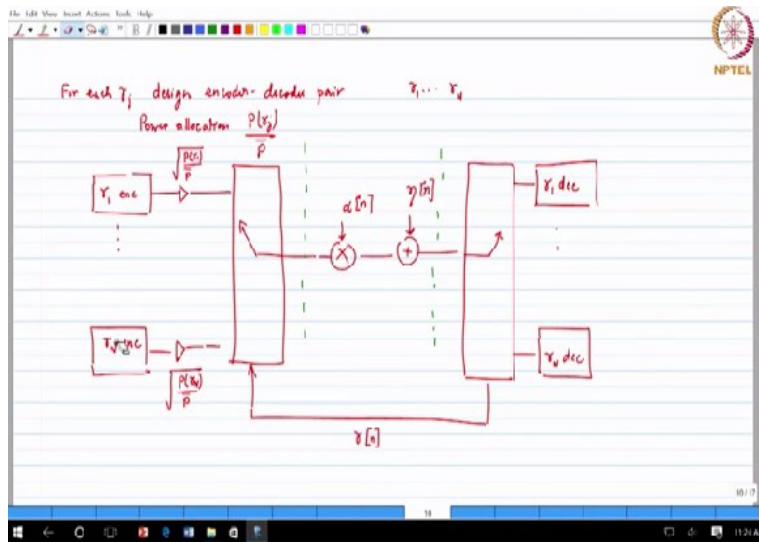 File Edit View Insert Actions Tools Help
NPTEL
For each γj design encoder-decoder pair γ1 ... γN
Power allocation P(γj)/P̄
√P(γ1)/P̄
γ1 enc
α[n]
η[n]
γ1 dec
×
+
γN enc
√P(γN)/P̄
γN dec
γ[n]
18